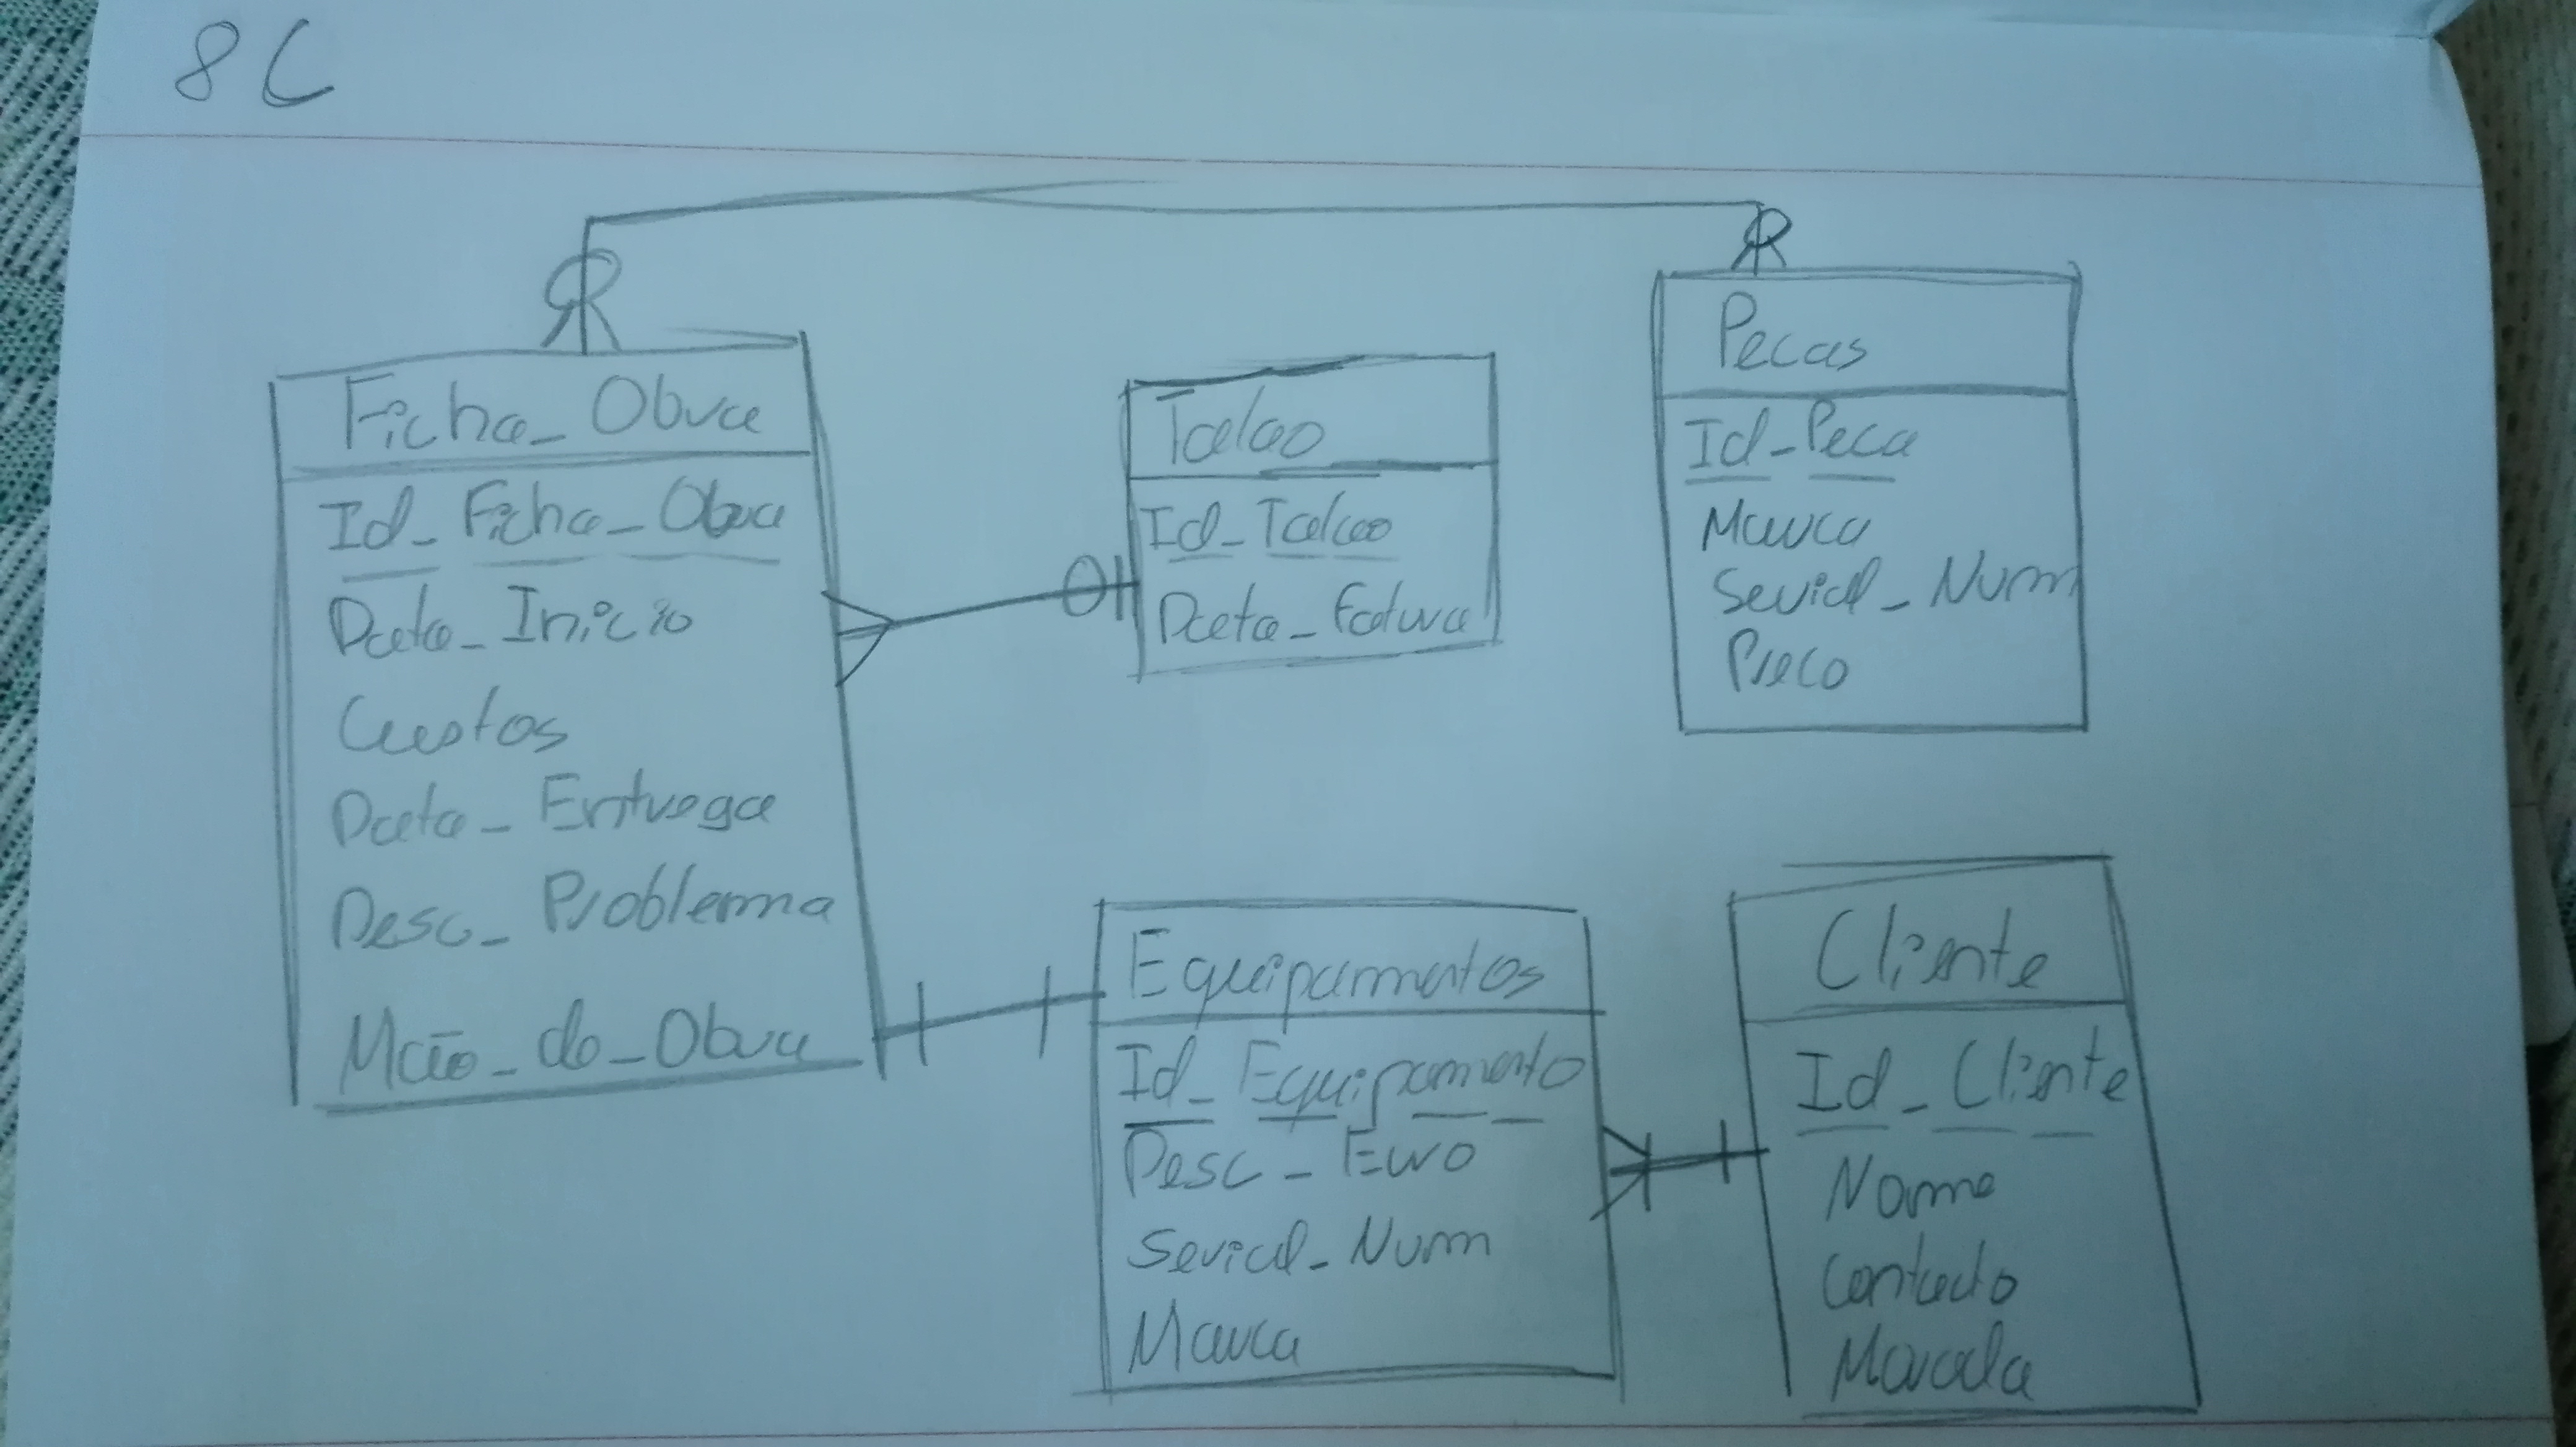 8C
Ficha_Obra
Id_Ficha_Obra
Data_Inicio
Custos
Data_Entrega
Desc_Problema
Mão_do_Obra
Talao
Id_Talao
Data_Fatura
Pecas
Id_Peca
Marca
Serial_Num
Preco
Equipamentos
Id_Equipamento
Desc_Erro
Serial_Num
Marca
Cliente
Id_Cliente
Nome
Contacto
Morada